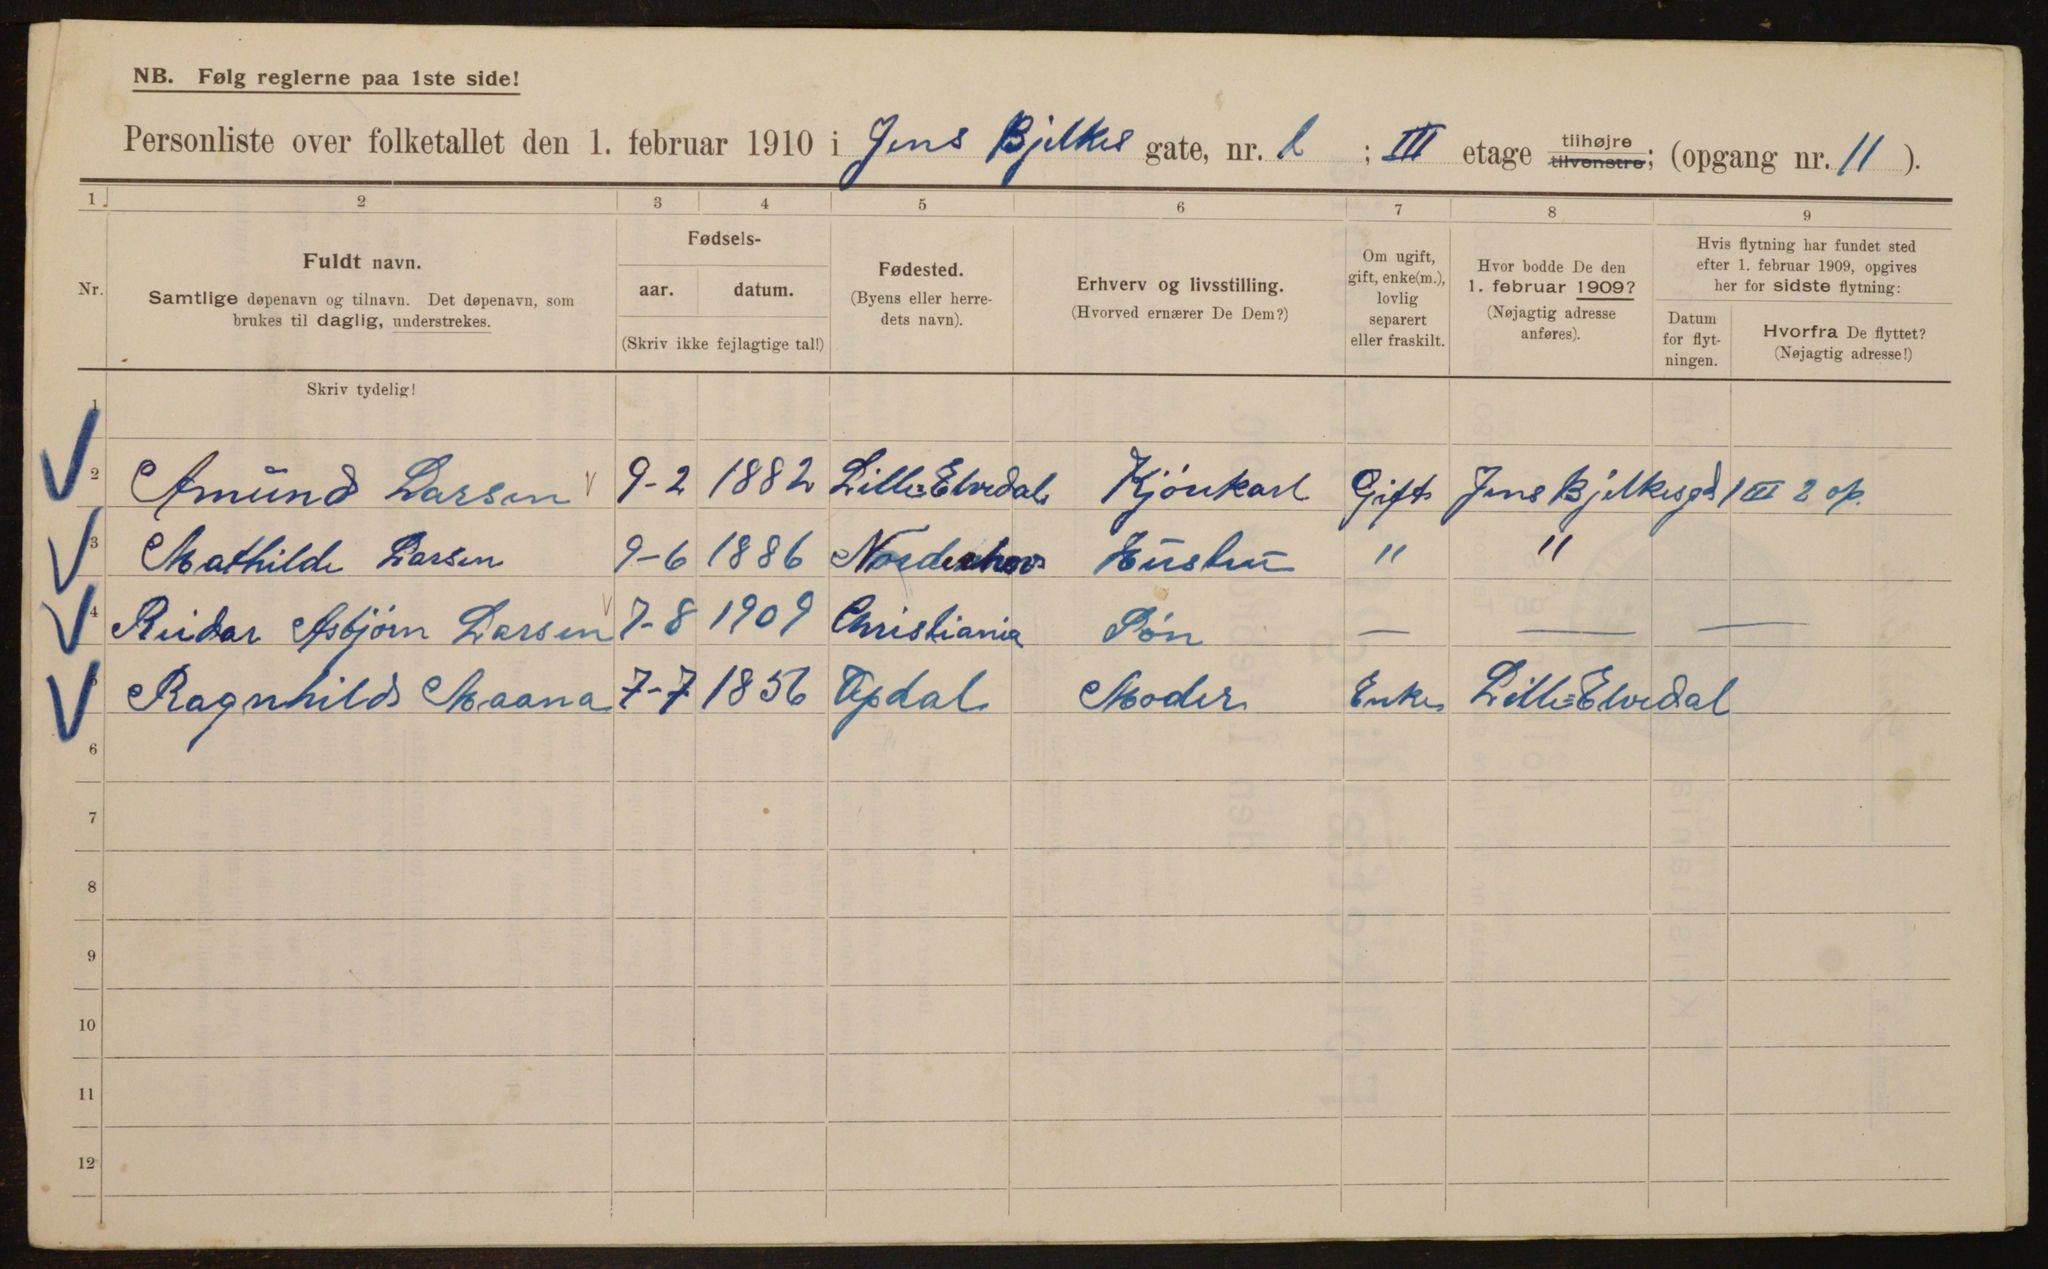 NB. Følg reglerne paa 1ste side!
Personliste over folketallet den 1. februar 1910 i Jens Bjelkes gate, nr. 1 ; III etage tilhøjre tilvenstre; (opgang nr. 11 ).
1 2 3 4 5 6 7 8 9
Nr.
Fuldt navn.
Samtlige døpenavn og tilnavn. Det døpenavn, som
brukes til daglig, understrekes.
Fødsels-
aar. datum.
(Skriv ikke fejlagtige tal!)
Fødested.
(Byens eller herre-
dets navn).
Erhverv og livsstilling.
(Hvorved ernærer De Dem?)
Om ugift,
gift, enke(m.),
lovlig
separert
eller fraskilt.
Hvor bodde De den
1. februar 1909?
(Nøjagtig adresse
anføres).
Hvis flytning har fundet sted
efter 1. februar 1909, opgives
her for sidste flytning:
Datum
for flyt-
ningen.
Hvorfra De flyttet?
(Nøjagtig adresse!)
Skriv tydelig!
1
2 Amund Larsen 9-2 1882 Lille=Elvedal Kjørekarl Gift Jens Bjelkesgd 1 III 2 op.
3 Mathilde Larsen 9-6 1886 Norderhov Hustru " "
4 Reidar Asbjørn Larsen 7-8 1909 Christiania Søn — — —
5 Ragnhild Maana 7-7 1856 Opdal Moder Enke Lille=Elvedal
6
7
8
9
10
11
12